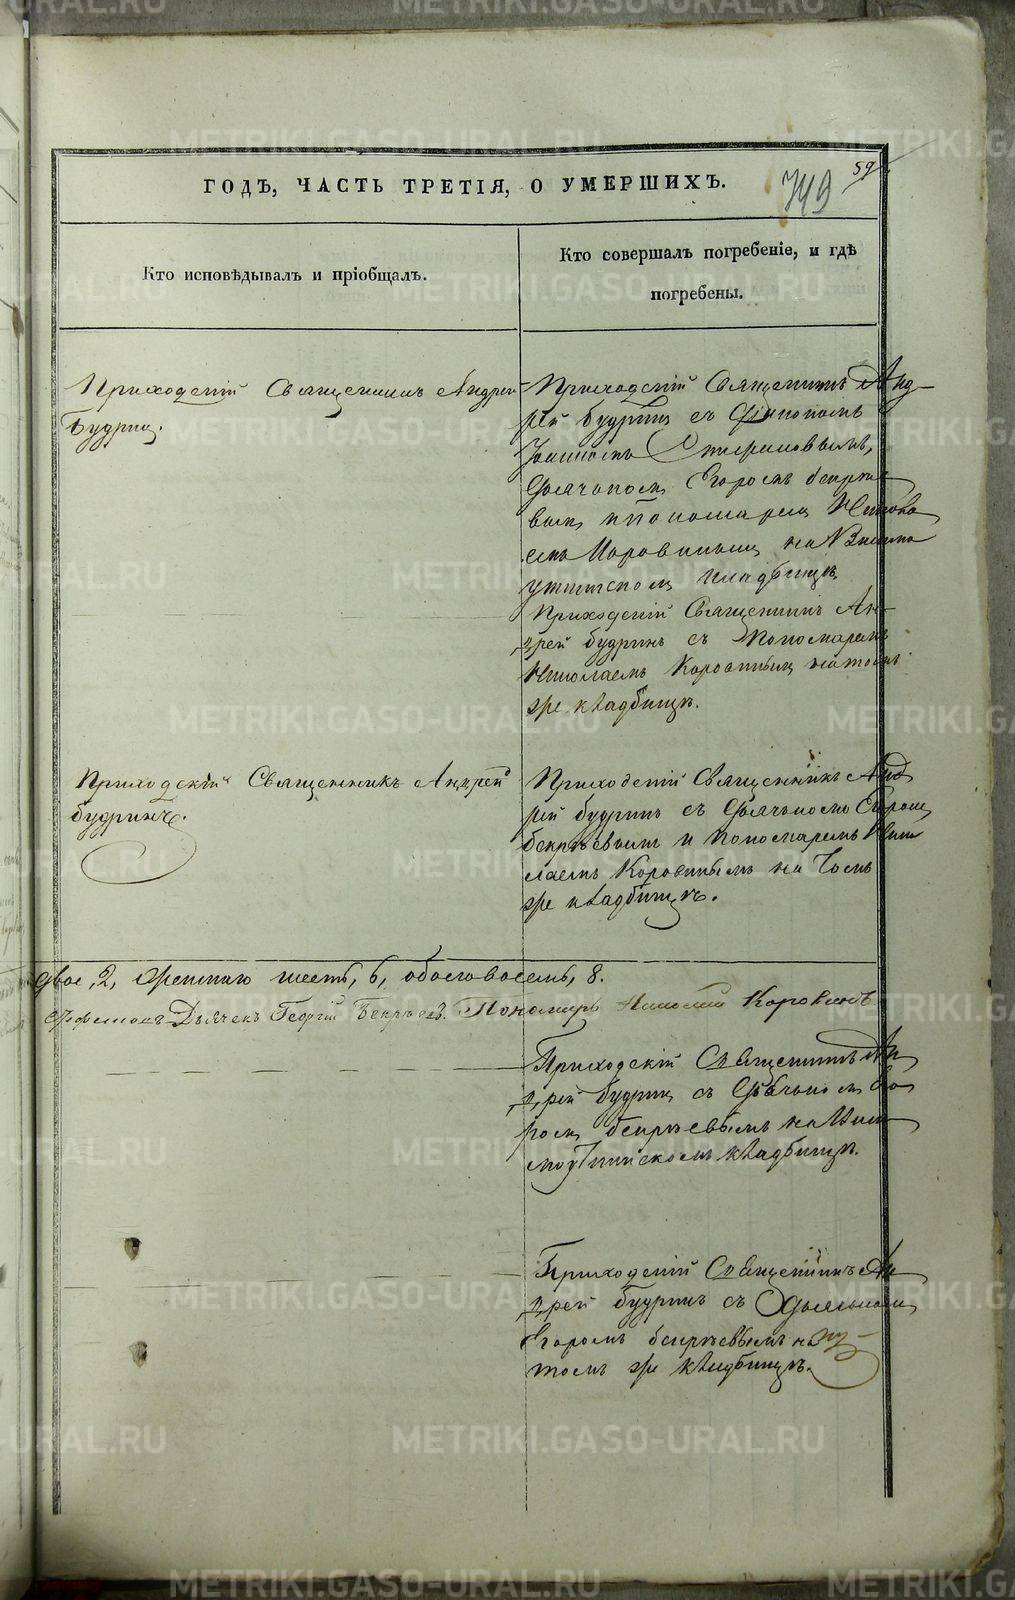 59
749
ГОДЪ, ЧАСТЬ ТРЕТІЯ, О УМЕРШИХЪ.
Кто исповѣдывалъ и пріобщалъ.
Кто совершалъ погребеніе, и гдѣ
погребены.
Приходскій Священникъ Андрей
Будринъ.
Приходскій Священникъ Анд-
рей Будринъ съ Діакономъ
Іоанномъ
Дьячкомъ Егоромъ Бекрѣе
вымъ и пономаремъ Никола
емъ Коровинымъ на
кладбищѣ
Приходскій Священникъ Ан-
дрей Будринъ съ Пономаремъ
Николаемъ Коровинымъ на томъ
же кладбищѣ.
Приходскій Священникъ Андрей
Будринъ.
Приходскій Священникъ Анд
рей Будринъ съ Дьячкомъ Егоромъ
Бекрѣевымъ и пономаремъ Нико
лаемъ Коровинымъ на томъ
же кладбищѣ.
двое, 2, женскаго шесть, 6, обоего восемь, 8.
Дьячекъ Георгій Бекрѣевъ. Пономарь Николай Коровинъ
Приходскій Священникъ Ан
дрей Будринъ съ Дьячкомъ Его
ромъ Бекрѣевымъ на
кладбищѣ.
Приходскій Священникъ Ан
дрей Будринъ съ Дьячкомъ
Егоромъ Бекрѣевымъ на
томъ же кладбищѣ.
METRIKI.GASO-URAL.RU